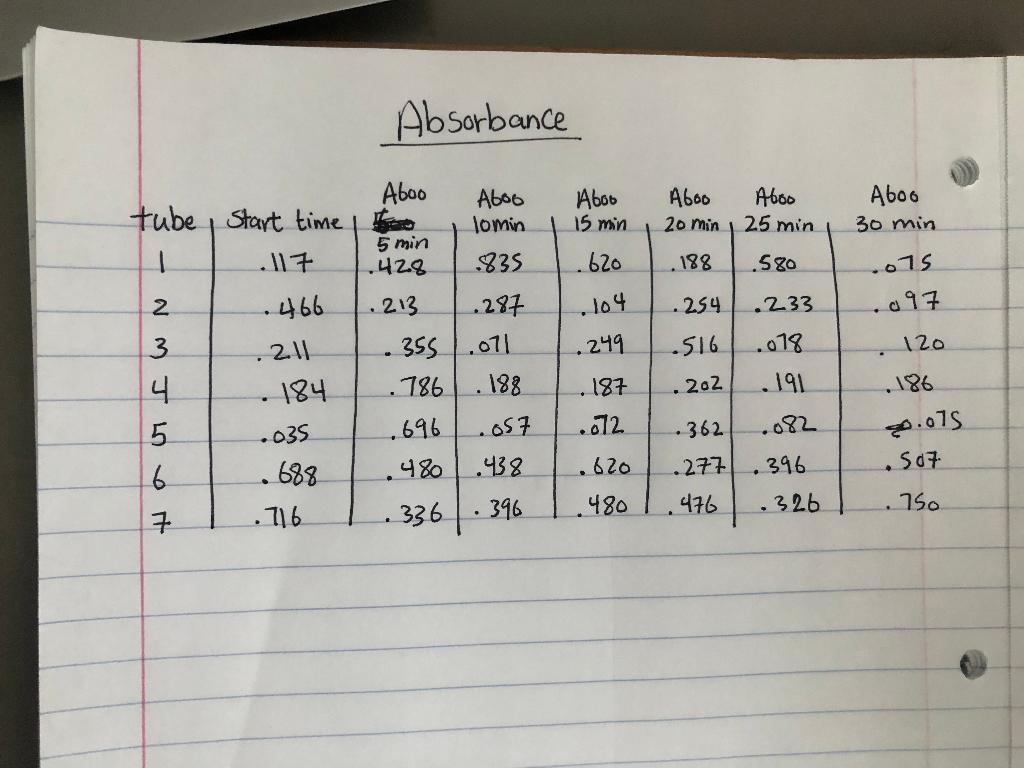 Absorbance
tube Start time A600 5 min A600 10min A600 15 min A600 20 min A600 25 min A600 30 min
1 .117 .428 .835 .620 .188 .580 .075
2 .466 .213 .287 .104 .254 .233 .097
3 .211 .355 .071 .249 .516 .078 .120
4 .184 .786 .188 .187 .202 .191 .186
5 .035 .696 .057 .072 .362 .082 .075
6 .688 .480 .438 .620 .277 .396 .507
7 .716 .336 .396 .480 .476 .326 .750